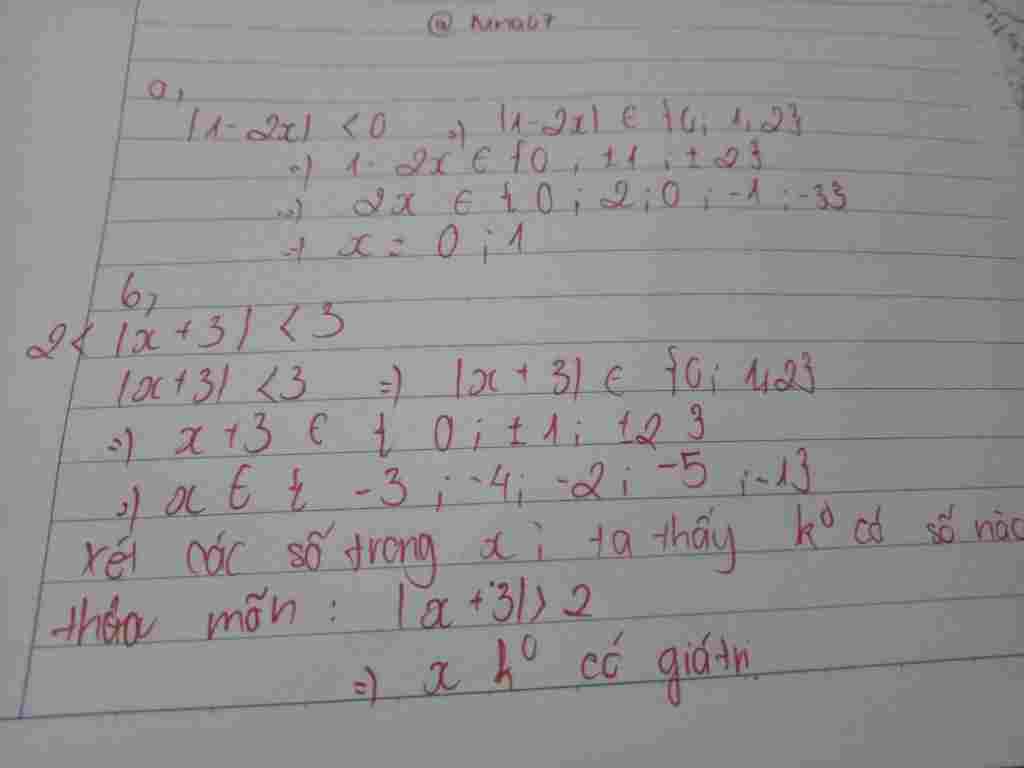 a,
|1-2x| < 0 => |1-2x| ∈ {0; 1, 2}
=> 1-2x ∈ {0; ±1; ±2}
=> 2x ∈ {0; 2; 0; -1; -3}
=> x = 0; 1
b,
2 < |x+3| < 3
|x+3| < 3 => |x+3| ∈ {0; 1, 2}
=> x+3 ∈ {0; ±1; ±2}
=> x ∈ {-3; -4; -2; -5; -1}
xét các số trong x; ta thấy k° có số nào
thỏa mãn: |x+3| > 2
=> x k° có giá trị